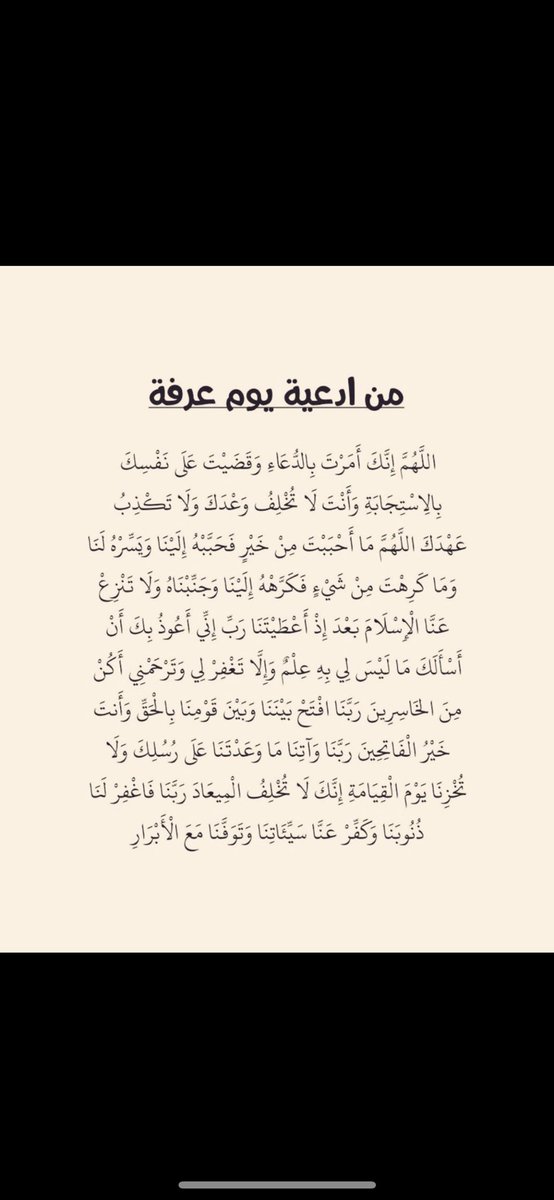 من ادعية يوم عرفة
اللَّهُمَّ إِنَّكَ أَمَرْتَ بِالدُّعَاءِ وَقَضَيْتَ عَلَى نَفْسِكَ
بِالِاسْتِجَابَةِ وَأَنْتَ لَا تُخْلِفُ وَعْدَكَ وَلَا تَكْذِبُ
عَهْدَكَ اللَّهُمَّ مَا أَحْبَبْتَ مِنْ خَيْرٍ فَحَبِّبْهُ إِلَيْنَا وَيَسِّرْهُ لَنَا
وَمَا كَرِهْتَ مِنْ شَيْءٍ فَكَرِّهْهُ إِلَيْنَا وَجَنِّبْنَاهُ وَلَا تَنْزِعْ
عَنَّا الْإِسْلَامَ بَعْدَ إِذْ أَعْطَيْتَنَا رَبِّ إِنِّي أَعُوذُ بِكَ أَنْ
أَسْأَلَكَ مَا لَيْسَ لِي بِهِ عِلْمٌ وَإِلَّا تَغْفِرْ لِي وَتَرْحَمْنِي أَكُنْ
مِنَ الخَاسِرِينَ رَبَّنَا افْتَحْ بَيْنَنَا وَبَيْنَ قَوْمِنَا بِالْحَقِّ وَأَنتَ
خَيْرُ الْفَاتِحِينَ رَبَّنَا وَآتِنَا مَا وَعَدْتَنَا عَلَى رُسُلِكَ وَلَا
تُخْزِنَا يَوْمَ الْقِيَامَةِ إِنَّكَ لَا تُخْلِفُ الْمِيعَادَ رَبَّنَا فَاغْفِرْ لَنَا
ذُنُوبَنَا وَكَفِّرْ عَنَّا سَيِّئَاتِنَا وَتَوَفَّنَا مَعَ الْأَبْرَارِ